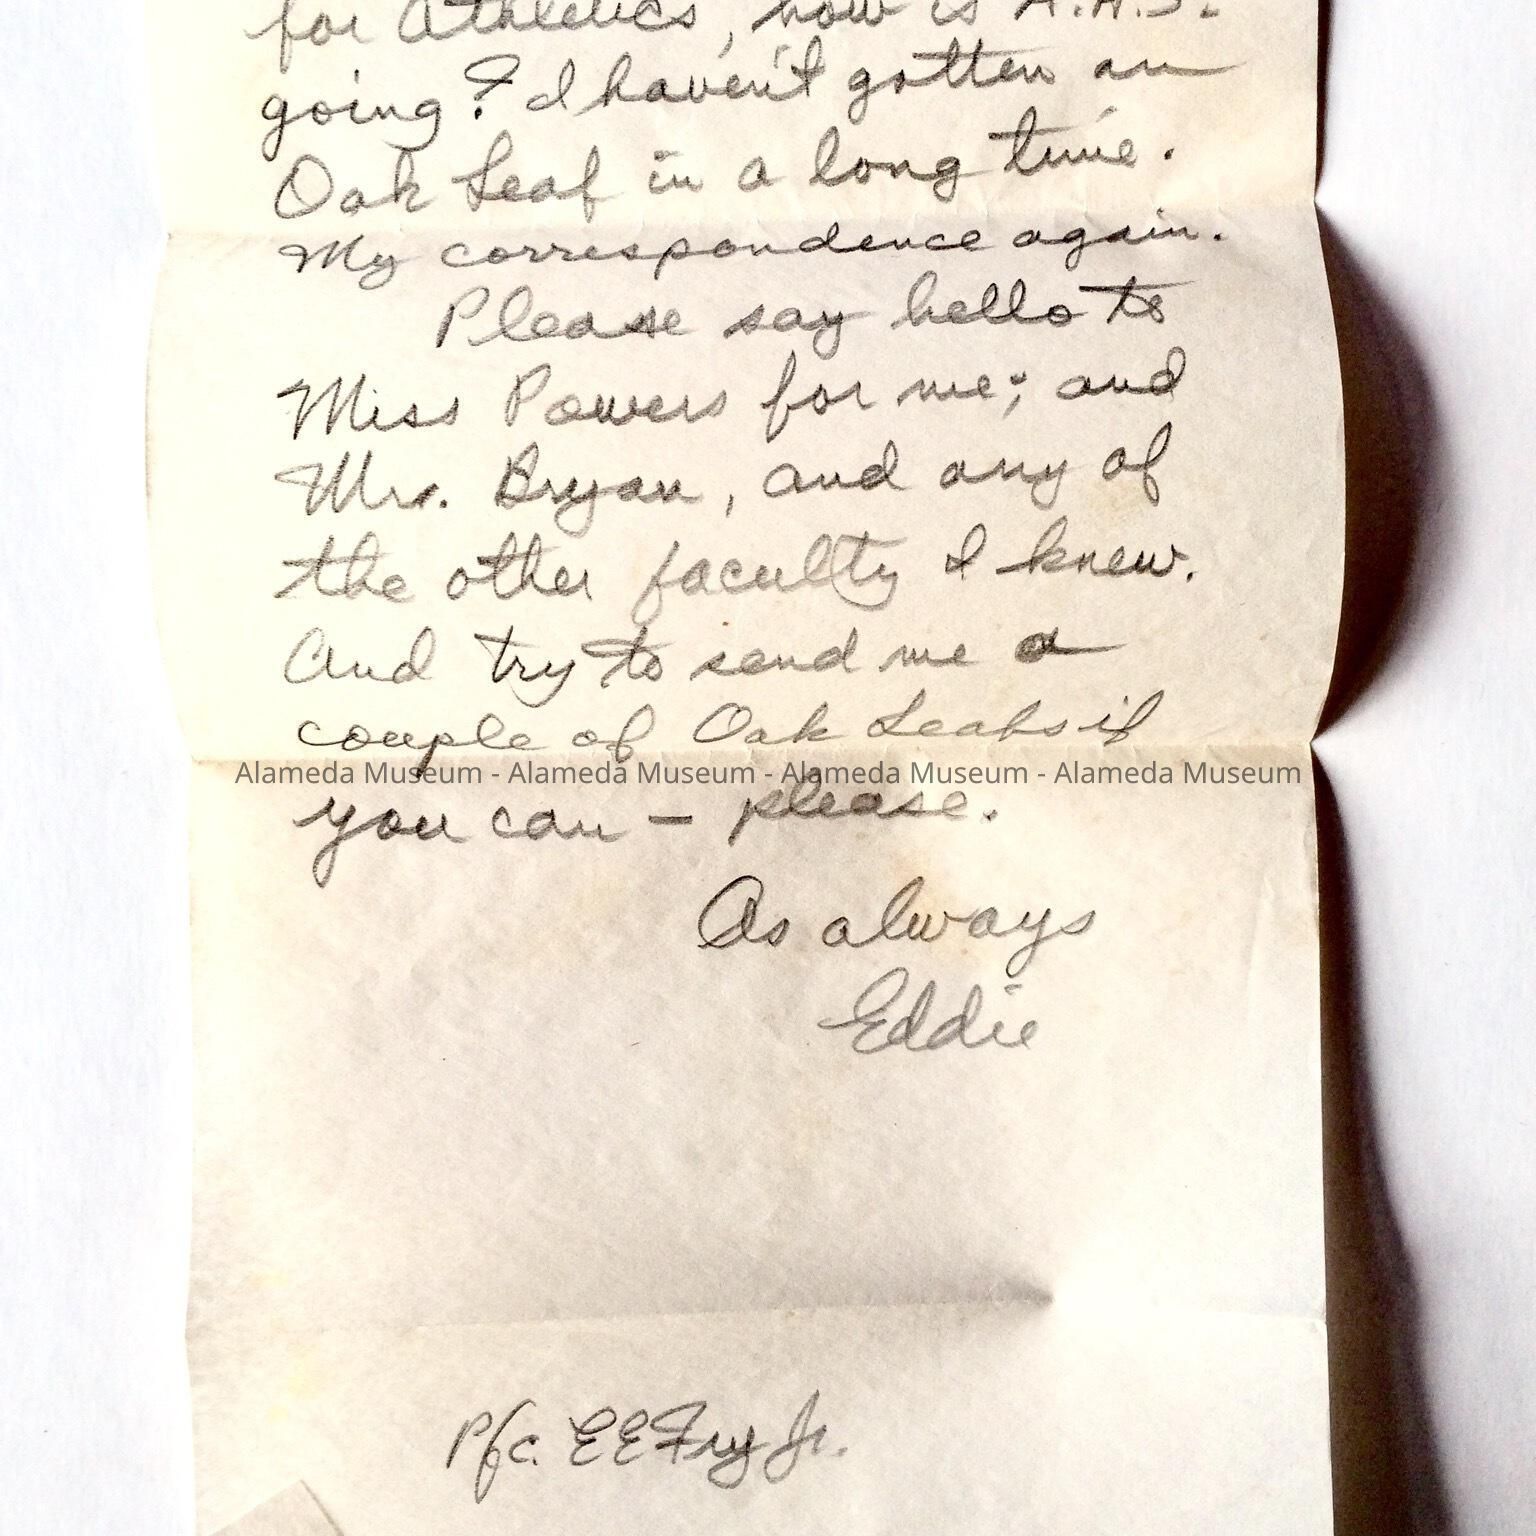 for Athletics, how is A.H.S.
going? I haven't gotten an
Oak Leaf in a long time.
My correspondence again.
Please say hello to
Miss Powers for me; and
Mrs. Bryan, and any of
the other faculty I knew.
And try to send me a
couple of Oak Leafs if
Alameda Museum - Alameda Museum - Alameda Museum - Alameda Museum
you can — please.
As always
Eddie
Pfc. E E Fry Jr.